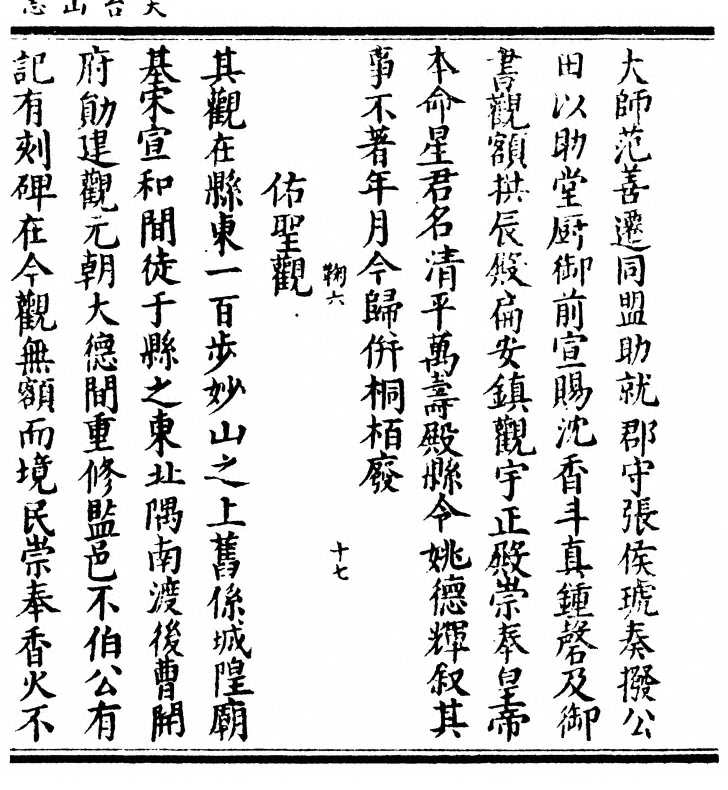 大師范善遷同盟助就郡守張侯琥奏撥公
田以助堂厨御前宣賜沈香斗真鍾磬及御
書觀額拱辰殿扁安鎮觀宇正殿崇奉皇帝
本命星君名清平萬壽殿縣令姚德輝叙其
事不著年月今歸併桐栢廢
鞠六
十七
佑聖觀
其觀在縣東一百步妙山之上舊係城隍廟
基宋宣和間徒于縣之東北隅南渡後曹開
府勛建觀元朝大德間重修監邑不伯公有
記有刻碑在今觀無額而境民崇奉香火不